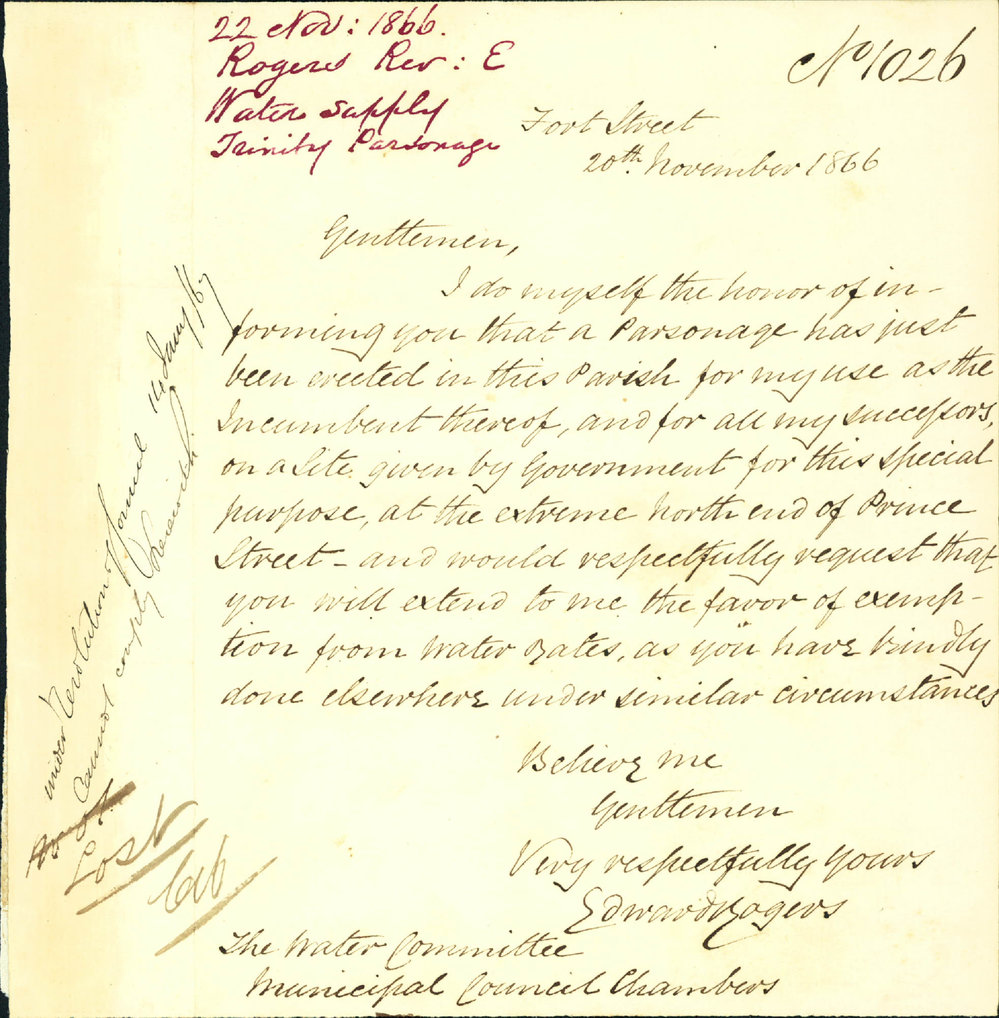 22 Nov: 1866.
Rogers Rev: E
Water supply
Trinity Parsonage
No 1026
Fort Street
20th November 1866
Gentlemen,
I do myself the honor of in-
forming you that a Parsonage has just
been erected in this Parish for my use as the
Incumbent thereof, and for all my successors,
on a Site given by Government for this special
purpose, at the extreme north end of Prince
Street - and would respectfully request that
you will extend to me the favor of exemp-
tion from Water Rates, as you have kindly
done elsewhere under similar circumstances
Believe me
Gentlemen
Very respectfully yours
Edward Rogers
The Water Committee
Municipal Council Chambers
under Resolution of Council
Cannot comply
Lost